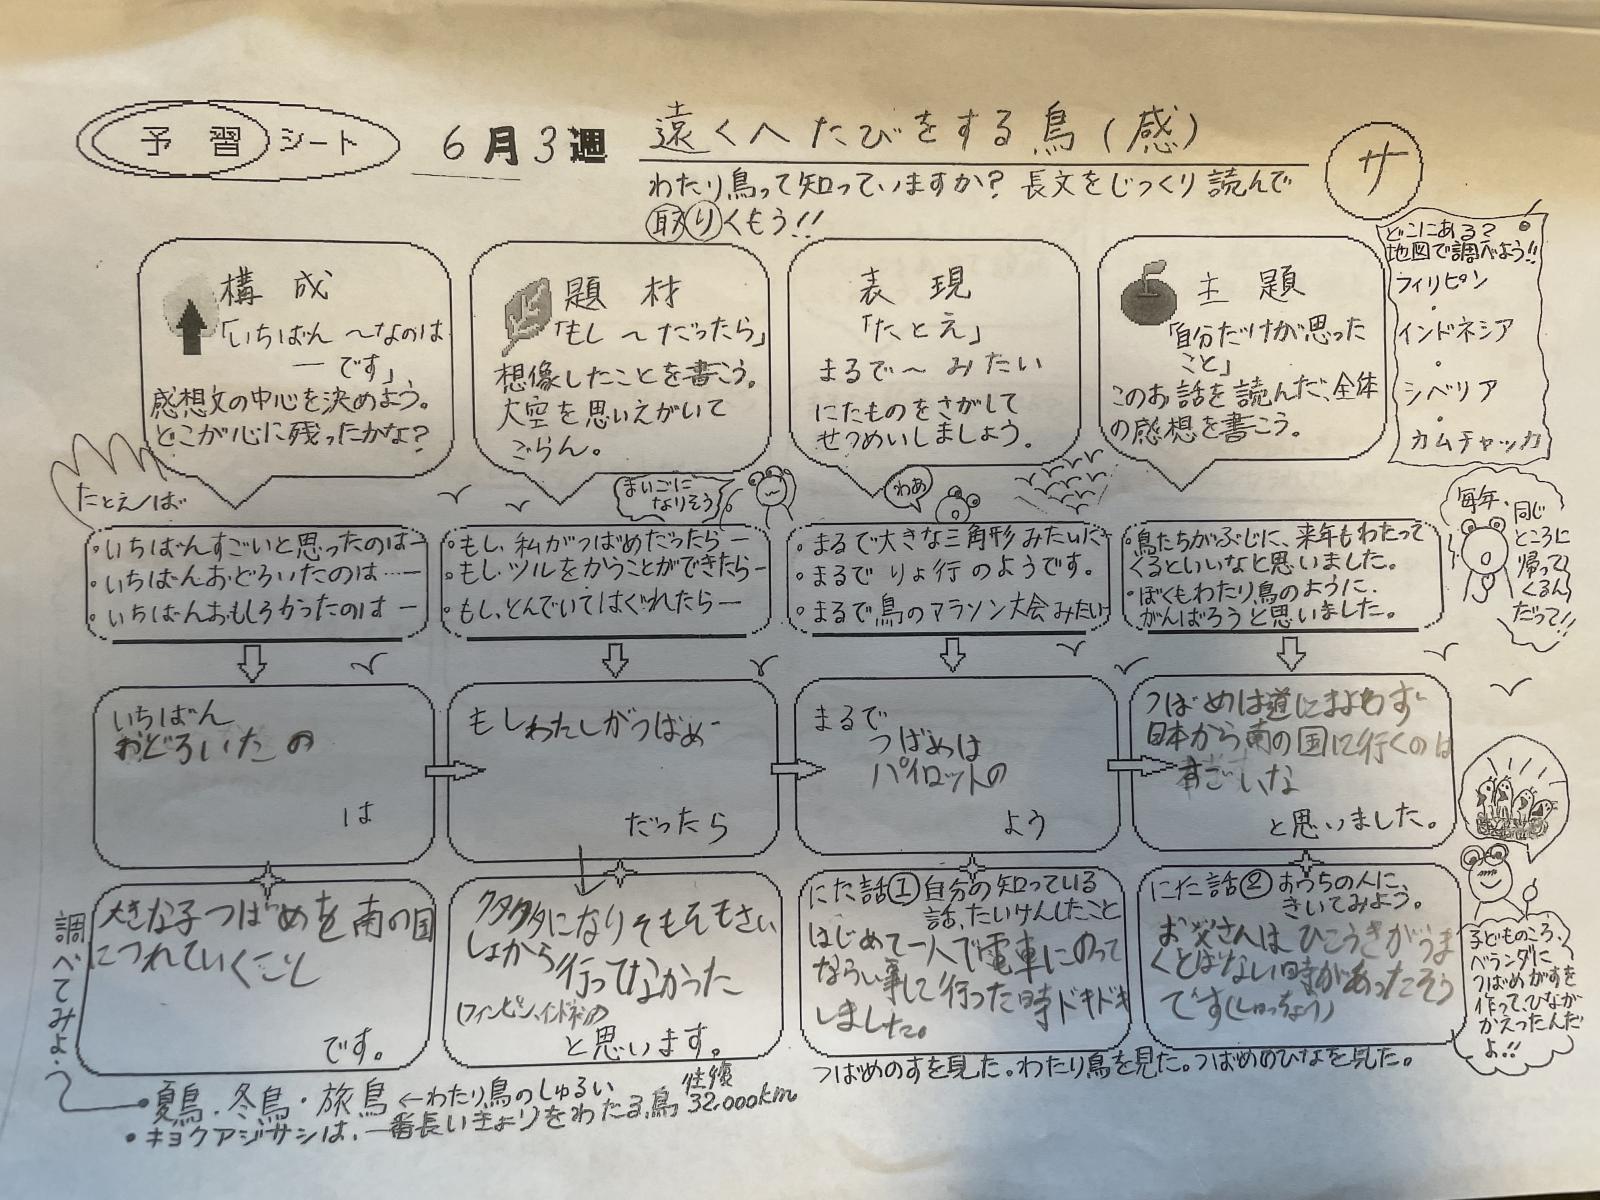 予習シート
6月3週
遠くへたびをする鳥(感)
サ
わたり鳥って知っていますか?長文をじっくり読んで
取りくもう!!
どこにある?
地図で調べよう!!
フィリピン
・
インドネシア
・
シベリア
・
カムチャッカ
構成
「いちばん〜なのは
―です」
感想文の中心を決めよう。
どこが心に残ったかな?
題材
「もし〜だったら」
想像したことを書こう。
大空を思いえがいて
ごらん。
表現
「たとえ」
まるで〜みたい
にたものをさがして
せつめいしましょう。
主題
「自分だけが思った
こと」
このお話を読んだ、全体
の感想を書こう。
たとえば
まいごに
なりそう
わあ
毎年、
同じ
ところに
帰って
くるん
だって!!
・いちばんすごいと思ったのは―
・いちばんおどろいたのは……
・いちばんおもしろかったのは―
・もし、私がつばめだったら―
・もし、ツルをかうことができたら―
・もし、とんでいてはぐれたら―
・まるで大きな三角形みたいだ
・まるでりょ行のようです。
・まるで鳥のマラソン大会みたい
・鳥たちがぶじに、来年もわたって
くるといいなと思いました。
・ぼくもわたり鳥のように、
がんばろうと思いました。
いちばん
おどろいたの
は
もしわたしがつばめ
だったら
まるで
つばめは
パイロットの
よう
つばめは道にまよわず
日本から南の国に行くのは
すごいな
と思いました。
調べてみよう
大きな子つばめを南の国
につれていくこと
です。
クタクタになりそもそもさい
しょから行ってなかった
と思います。
にた話①自分の知っている
話、たいけんしたこと
はじめて一人で電車にのって
ならい事して行った時ドキドキ
しました。
にた話②おうちの人に、
きいてみよう。
お父さんは、ひこうきがうま
くとばない時があったそう
です(しゅっちょう)
子どものころ、
ベランダに
つばめがすを
作って、ひなが
かえったんだ
よ!!
つばめのすを見た。わたり鳥を見た。つばめのひなを見た。
・夏鳥・冬鳥・旅鳥←わたり鳥のしゅるい
・キョクアジサシは、一番長いきょりをわたる鳥 往復 32,000km